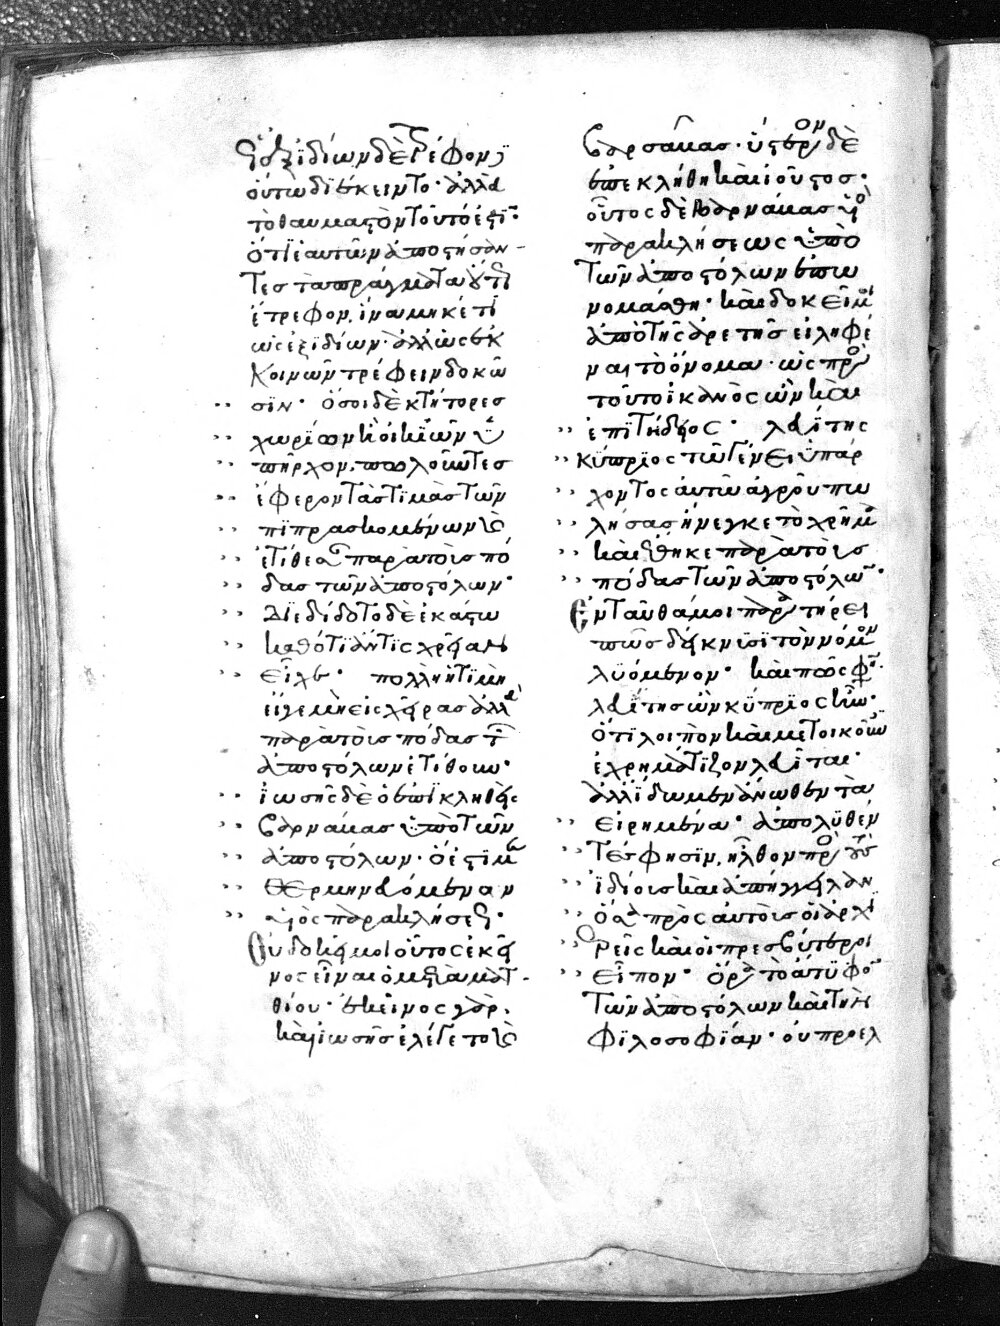 ἐξ ἰδίων δὲ τρέφοντ
οὕτω διέκειντο· ἀλλὰ
τὸ θαυμαστὸν τοῦτό ἐστϊν·
ὅτι ἑαυτῶν ἀποστήσαν-
τες τὰ πράγματα οὕτως
ἔτρεφον, ἵνα μηκέτι
ὡς ἐξ ϊδίων· ἀλλ' ὡς ἐκ
κοινῶν τρέφειν δοκῶ
σϊν· ὅσοι δὲ κτήτορες
χωρίων ἢ οἰκϊῶν ὑ
πῆρχον, πωλοῦντες
ἔφερον τὰς τϊμὰς τῶν
πϊπρασκομένων καὶ
ἐτίθεσαν παρὰ τοὺς πό
δας τῶν ἀποστόλων·
Διεδίδοτο δὲ ἑκάστω
καθότϊ ἄν τϊς χρείαν
εἶχεν· πολλὴν τϊμὴν
εἶγε μὴ εἰς χεῖρας ἀλλὰ
παρὰ τοὺς πόδας τῶν
ἀποστόλων ἐτίθουν·
ἰωσῆς δὲ ὁ ἐπϊκληθεὶς
βαρνάβας ὑπὸ τῶν
ἀποστόλων· ὅ ἐστϊ με
θερμηνευόμενον
υἱὸς παρακλήσεως·
Οὐ δοκεῖ μοι οὗτος ἐκεῖ
νος εἶναι ὁ μετὰ ματ-
θίου· ἐκεῖνος γὰρ,
καὶ ϊωσῆς ἐλέγετο καὶ
βαρσαβας· ὕστερον δὲ
ἐπεκλήθη καὶ ϊοῦστος·
οὗτος δὲ βαρνάβας υἱὸς
παρακλήσεως ὑπὸ
τῶν ἀποστόλων ἐπω
νομάσθη· καὶ δοκεῖ μοι
ἀπὸ τῆς ἀρετῆς εἰληφέ
ναι τὸ ὄνομα· ὡς πρὸς
τοῦτο ἱκανὸς ὢν καὶ
ἐπϊτήδειος· λευΐτης
κύπρϊος τῶ γένει ὑπάρ
χοντος αὐτῶ ἀγροῦ πω
λήσας ἤνεγκε τὸ χρῆμα
καὶ ἔθηκε παρὰ τοὺς
πόδας τῶν ἀποστόλων·
Ἐνταῦθά μοι παρατήρει
πῶς δείκνυσϊ τὸν νόμον
λϋόμενον· καὶ πῶς φη
λευΐτης ὢν κύπρϊος ἦν·
Ὅτϊ λοιπὸν καὶ μετοικοῦν
ἐχρημάτϊζον λευΐται·
ἀλλ' ἴδωμεν ἄνωθεν τὰ
εἰρημένα· ἀπολϋθέν
τες φησϊν, ἦλθον πρὸς τοὺς
ϊδίους καὶ ἀπήγγειλαν
ὅσα πρὸς αὐτοὺς οἱ ἀρχι
ερεῖς καὶ οἱ πρεσβύτεροι
εἶπον· ὅρα τὸ ἄτυφον
τῶν ἀποστόλων καὶ τὴν
φϊλοσοφϊαν· οὐ προελ